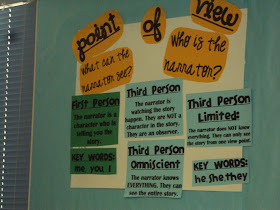 point of view
What can the
narrator see?
Who is the
narrator?
First Person
The narrator is a
character who is
telling you the
story.
KEY WORDS:
me you I
Third Person
The narrator is
watching the story
happen. They are NOT
a character in the story.
They are an observer.
Third Person
Omniscient
The narrator knows
EVERYTHING. They can
see the entire story.
Third Person
Limited:
The narrator does NOT know
everything. They can only see
the story from one view point.
KEY WORDS:
he, she, they